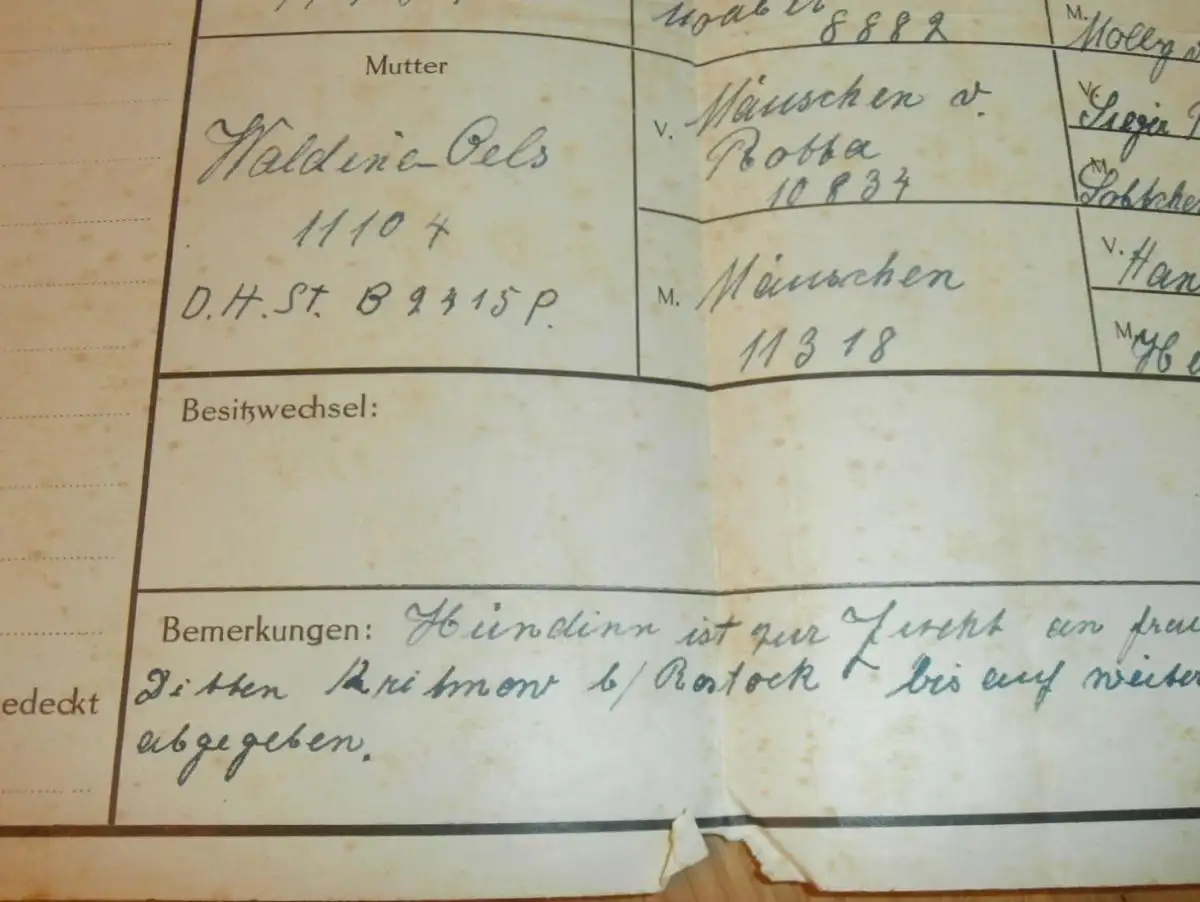 8882
M. Molly v
Mutter
Waldine Oels
11104
D.H.St. B 2415 P.
V. Mäuschen v.
Robba
10834
V. Sieger
M.
M. Mäuschen
11318
V. Han
M. He
Besitzwechsel:
Bemerkungen: Hündinn ist zur Zucht an frau
Kritmow b/ Rostock bis auf weiter
abgegeben.
edeckt